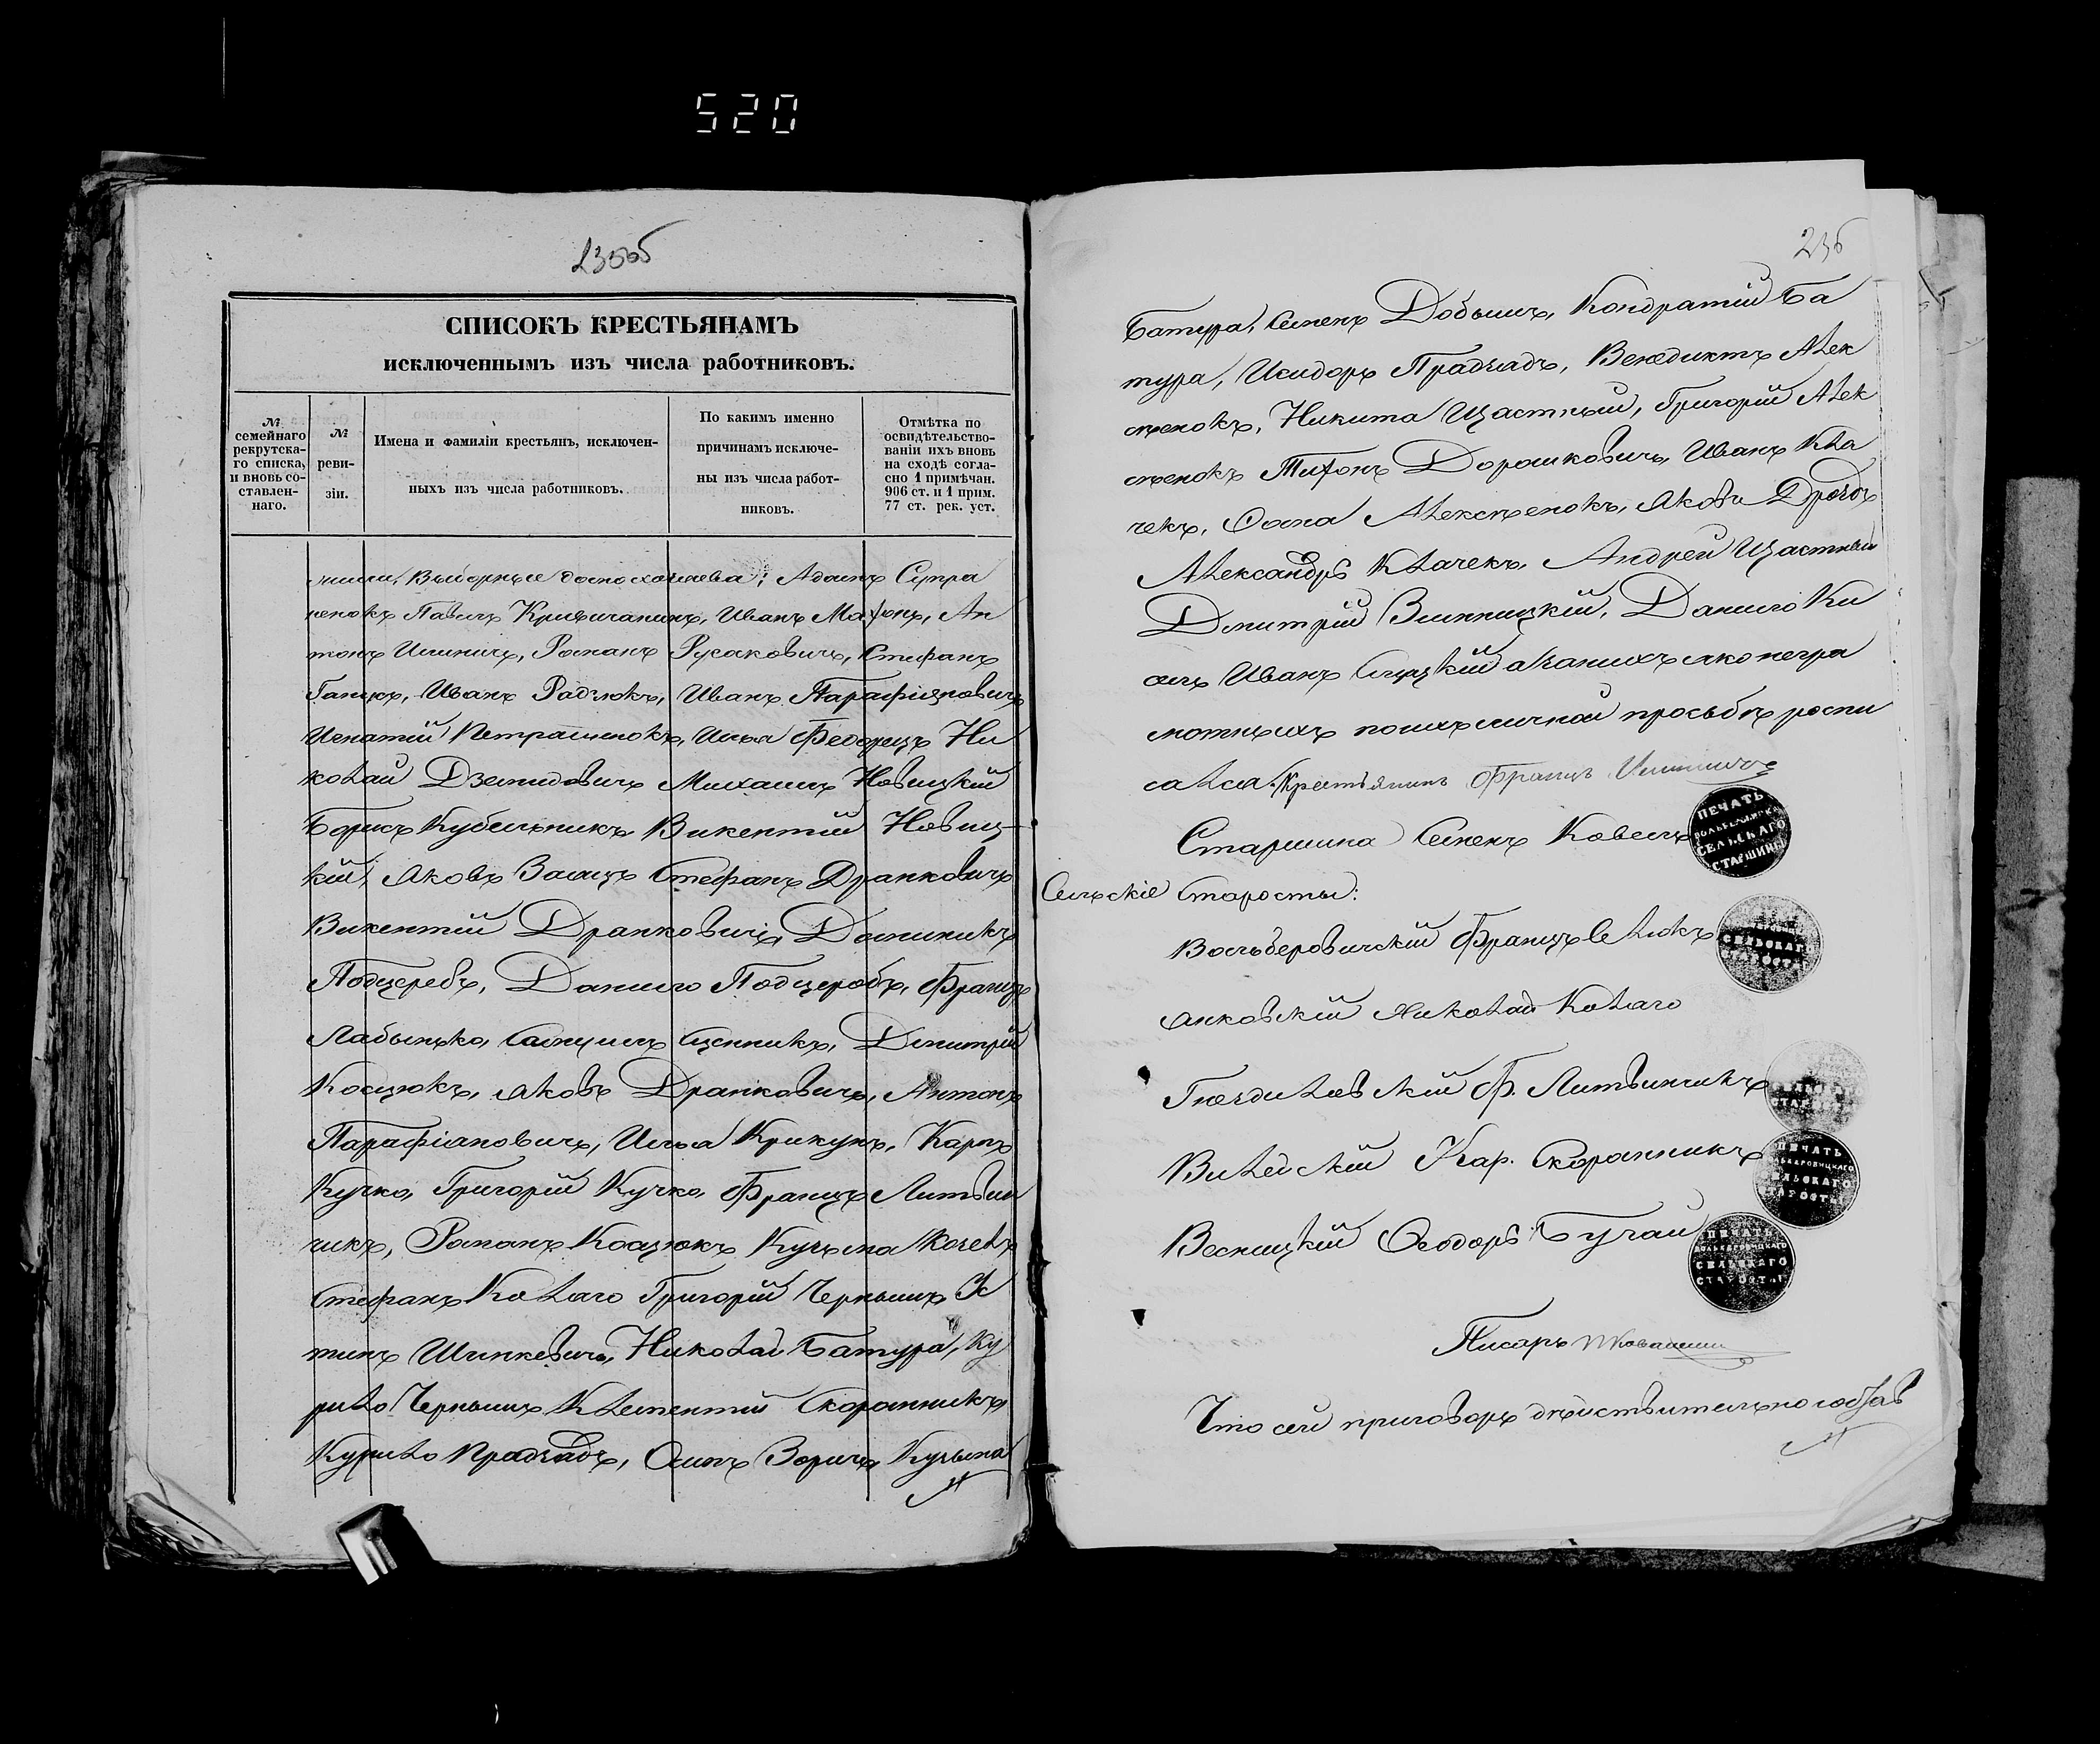 520
235об
СПИСОКЪ КРЕСТЬЯНАМЪ
исключеннымъ изъ числа работниковъ.
№ семейнаго рекрутска-го списка, и вновь со-ставлен-наго.
№ реви-зіи.
Имена и фамиліи крестьянъ, исключен-ныхъ изъ числа работниковъ.
По какимъ именно причинамъ исключе-ны изъ числа работ-никовъ.
Отмѣтка по освидѣтельство-ваніи ихъ вновь на сходѣ согла-сно 1 примѣчан. 906 ст. и 1 прим. 77 ст. рек. уст.
Выборные Адамъ Супра
ненокъ Павелъ Кривичанинъ, Иванъ Махонь, Ан
тонъ Романъ Русаковичъ, Стефанъ
Иванъ Радзюкъ, Иванъ Парафіяновичъ
Игнатій Петрашенокъ, Илья Федорецъ Ни
колай Дземидовичъ Михаилъ Новицкій
Борисъ Кубельникъ Викентій Новиц-
кій, Яковъ Заяцъ Стефанъ Дранковичъ
Викентій Дранковичъ, Доминикъ
Подщеробъ, Данило Подщеробъ, Францъ
Лабынько, Самуилъ Сценникъ, Дмитрій
Косцюкъ, Яковъ Дранковичъ, Антонъ
Парафіановичъ, Илья Крикунъ, Карпъ
Кучко, Григорій Кучко, Францъ Литвин
чикъ, Романъ Косцюкъ Кузьма Козелъ
Стефанъ Колаго Григорій Чернышъ, Ус
тинъ Шинкевичъ, Николай Батура, Ку
рило Чернышъ Клементій Скоранникъ
Курило Прадзядъ, Осипъ Зоричъ, Кузьма
236
Батура, Семенъ Добышъ, Кондратій Ба
тура, Исидоръ Прадзядъ, Венедиктъ Алек
сѣенокъ, Никита Щастный, Григорій Алек
сѣенокъ Тихонъ Дорошковичъ, Иванъ Кла
чекъ, Фома Алексѣенокъ, Яковъ Дроздъ
Александръ Клачекъ, Андрей Щастный
Дмитрій Винницкій, Данило Ки
селъ Иванъ Сицкій а за нихъ яко негра
мотныхъ по ихъ личной просьбѣ роспи
сался Крестьянинъ Францъ
Старшина Семенъ Ковелъ
ПЕЧАТЬ
СЕЛЬСКАГО
СТАРШИНЫ
Сельскіе Старосты:
Вольберовичскій Францъ Селюкъ
СЕЛЬСКАГО
СТАРОСТЫ
Янковскій Николай Колаго
Гнездиловскій Ф. Литвинчикъ
Вилейскій Кар. Скоранникъ
ПЕЧАТЬ
СЕЛЬСКАГО
СТАРОСТЫ
Весницкій Феодоръ Бугай
ПЕЧАТЬ
СЕЛЬСКАГО
СТАРОСТЫ
Писарь
Что сей приговоръ дѣйствительно состав